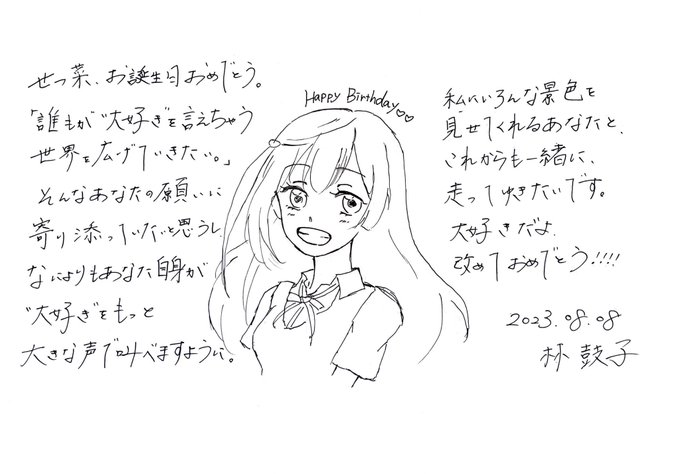 せつ菜、お誕生日おめでとう。
「誰もが"大好き"を言えちゃう
世界を広げていきたい。」
そんなあなたの願いに
寄り添っていたいと思うし
なによりもあなた自身が
"大好き"をもっと
大きな声で叫べますように。
Happy Birthday♡♡
私にいろんな景色を
見せてくれるあなたと、
これからも一緒に、
走ってゆきたいです。
大好きだよ、
改めておめでとう!!!!
2023.08.08
林 鼓子